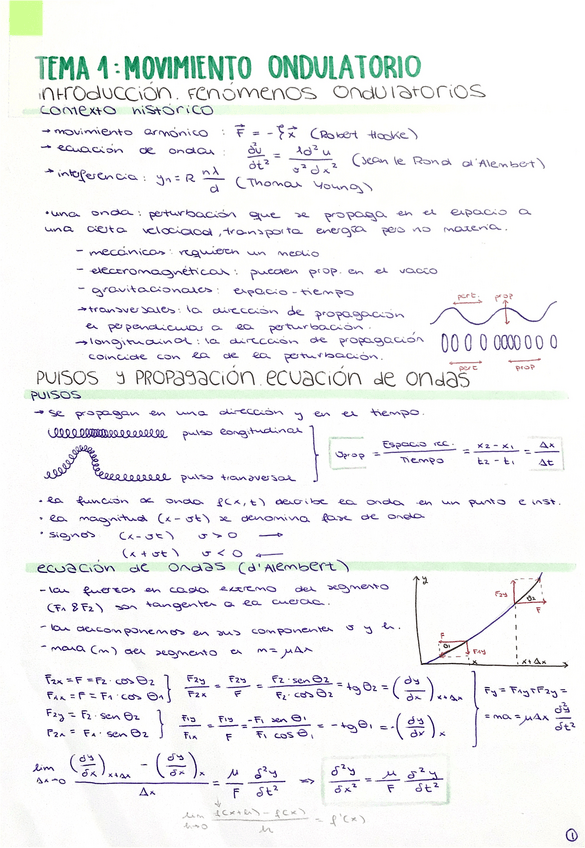 TEMA 1: MOVIMIENTO ONDULATORIO
introducción. Fenómenos ondulatorios
contexto histórico
→ movimiento armónico : F⃗ = - ξ x⃗ (Robert Hooke)
→ ecuación de ondas : ∂²u/∂t² = 1 ∂²u / v² dx² (Jean le Rond d'Alembert)
→ interferencia : yn = R nλ/d (Thomas Young)
• una onda : perturbación que se propaga en el espacio a
una cierta velocidad, transporta energía pero no materia.
- mecánicas : requieren un medio
- electromagnéticas : pueden prop. en el vacío
- gravitacionales : espacio-tiempo
→ transversales : la dirección de propagación
es perpendicular a la perturbación.
pert. prop
→ longitudinal : la dirección de propagación
coincide con la de la perturbación.
pert prop
PULSOS y PROPAGACIÓN. ECUACIÓN DE ONDAS
PULSOS
→ se propagan en una dirección y en el tiempo.
pulso longitudinal
pulso transversal
vprop = Espacio rec. / Tiempo = x2 - x1 / t2 - t1 = Δx / Δt
• la función de onda f(x,t) describe la onda en un punto e inst.
• la magnitud (x - vt) se denomina fase de onda
• signos (x - vt) v > 0 →
(x + vt) v < 0 ←
ecuación de ondas (d'Alembert)
- las fuerzas en cada extremo del segmento
(F1 & F2) son tangentes a la cuerda.
- las descomponemos en sus componentes v y h.
- masa (m) del segmento es m = μΔx
y F2y θ2 F F θ1 F1y x x+Δx
F2x = F = F2 · cos θ2
F1x = F = F1 · cos θ1
F2y = F2 · sen θ2
F2x = F1 · sen θ2
F2y/F2x = F2y/F = F2 · sen θ2 / F2 · cos θ2 = tg θ2 = (dy/dx) x+Δx
F1y/F1x = F1y/F = -F1 sen θ1 / F1 cos θ1 = -tg θ1 = -(dy/dx) x
Fy = F1y + F2y =
= ma = μΔx d²y/dt²
lim Δx→0 (δy/δx) x+Δx - (δy/δx) x / Δx = μ/F δ²y/δt² ⇒ δ²y/δx² = μ/F δ²y/δt²
lim h→0 f(x+h) - f(x) / h = f'(x)
1